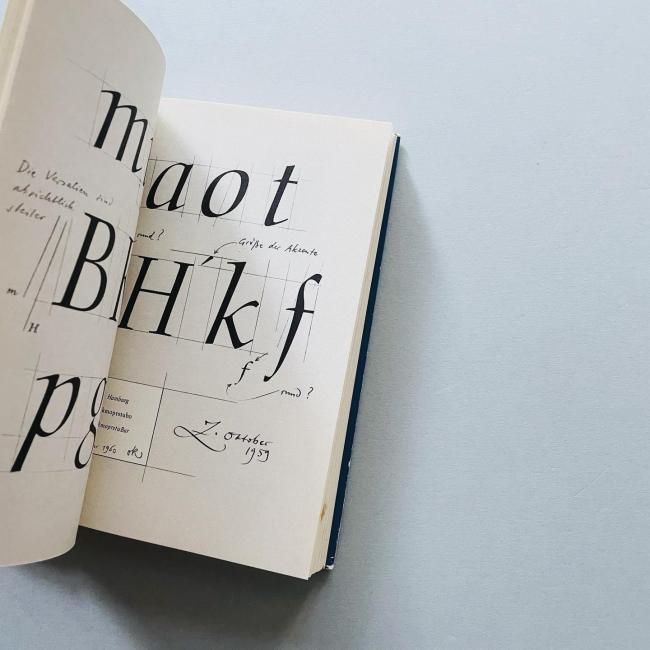 m
Die Versalien sind
absichtlich
steiler
m
H
B
p g
a o t
rund?
Größe der Akzente
H ́ k f
f
rund?
Hamburg
Z. oktober
1959
1960 ok